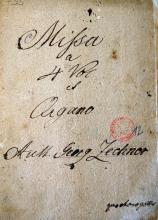 Missa
a
4 Voc
et
Organo
Auth. Georg Zechner
12